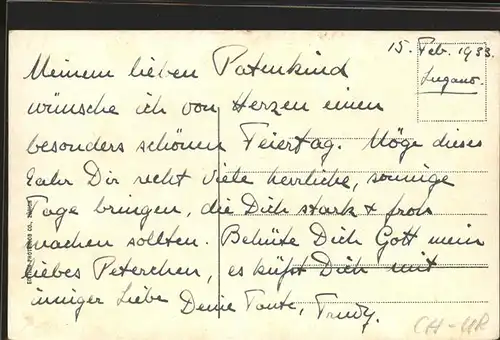 15. Feb. 1933.
Lugano.
Meinem lieben Patenkind
wünsche ich von Herzen einen
besonders schönen Feiertag. Möge dieses
Jahr Dir recht viele herrliche, sonnige
Tage bringen, die Dich stark + froh
machen sollten. Behüte Dich Gott mein
liebes Peterchen, es küsst Dich mit
inniger Liebe Deine Tante, Trudy.
CH-UR